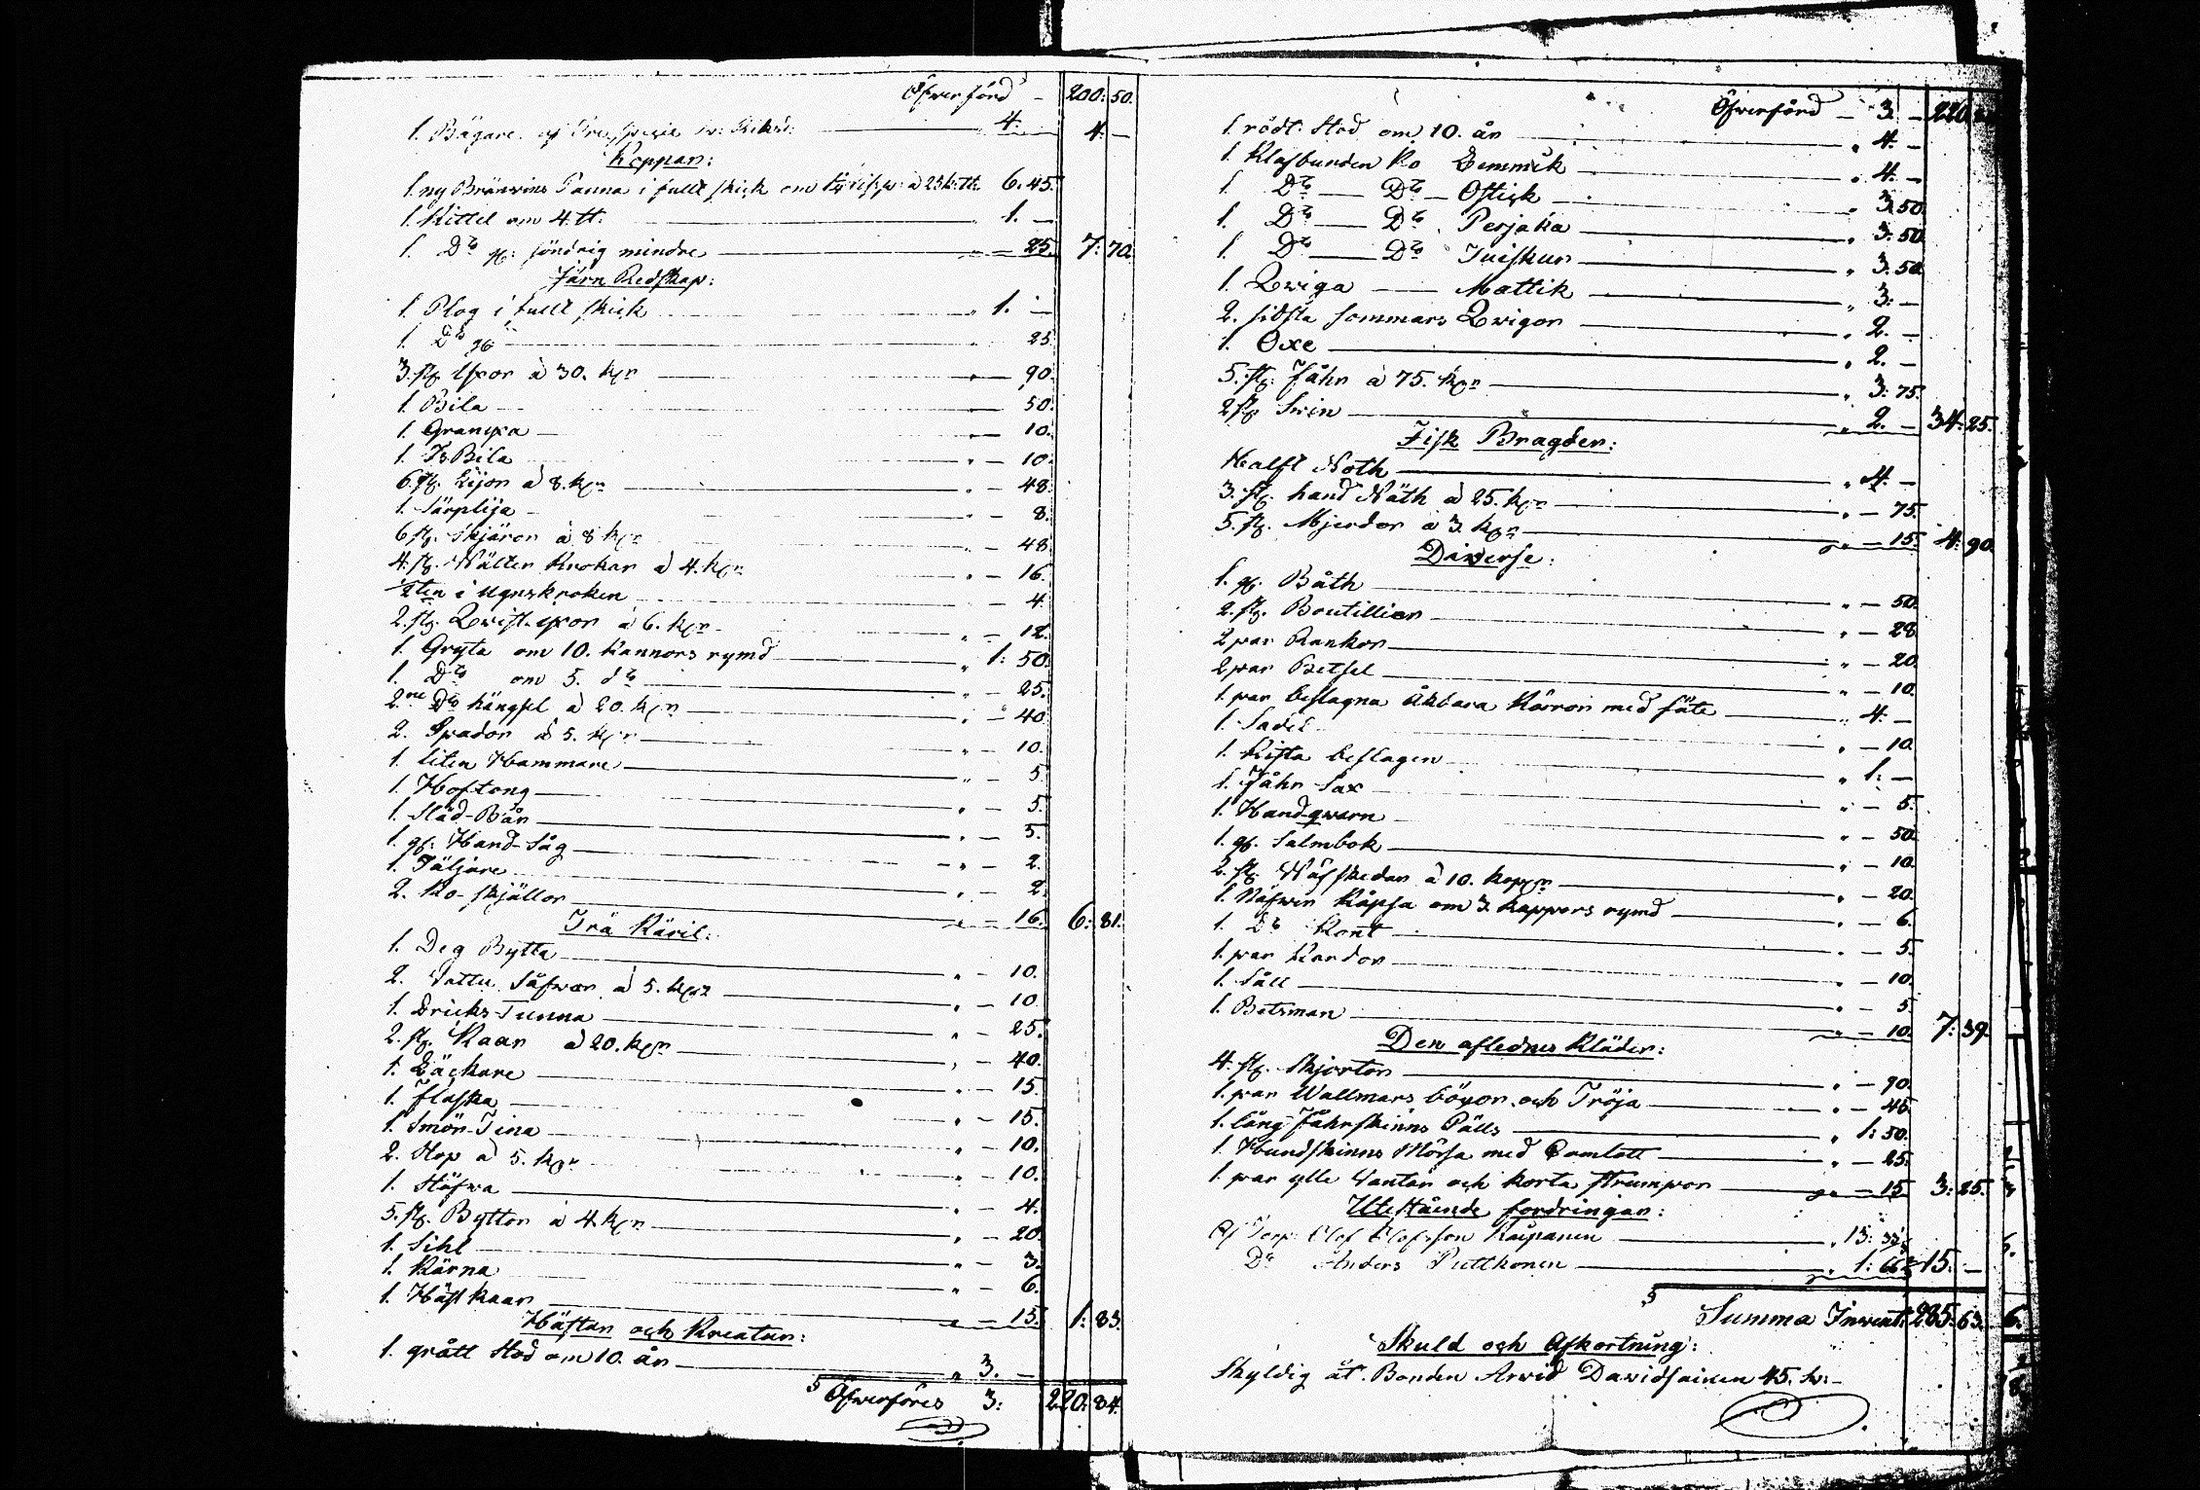 Öfwerförd – 200: 50.
1. Bägare 4: 4: –
Koppar:
1. ny Bränwins Panna i fullt skick om 6. 45.
1. Kittel om 4. ℔. 1. –
1. Dto gl: söndrig mindre – 25. 7: 70.
Järn Redskap:
1. Plog i fullt skick 1. –
1. Dto gl: 25
3. st. Yxor à 30. kpr – 90.
1. Bila – 50.
1. Granyxa – 10.
1. Is Bila – 10.
6. st. Lijor à 8. kpr – 48.
1. Särplija – 8.
6 st. Skjäror à 8 kpr – 48.
4. st. Wälten Krokar à 4. kpr – 16.
Ugnskroken – 4.
2. st. Qwist-yxor à 6. kpr – 12.
1. Gryta om 10. kannors rymd 1: 50.
1. Dto om 5. dto – 25.
2ne Dto hängsel à 20. kpr – 40
2. Spador à 5. kpr – 10.
1. liten Hammare – 5
1. Hoftong – 5.
1. Släd-Bår – 5.
1. gl: Hand-Såg – 2.
1. Täljare – 2.
2. Ko-skjällor – 16. 6: 81.
Trä Käril:
1. Deg Bytta – 10.
2. Vattu Såfwar à 5. kpr – 10
1. Dricks-Tunna – 25.
2. st. Kaar à 20. kpr – 40.
1. Läckare – 15.
1. Flaska – 15.
1. Smör-Tina – 10.
2. Stop à 5. kpr – 10.
1. Stäfwa – 4.
5. st. Byttor à 4. kpr – 20.
1. Sihl – 3.
1. Kärna – 6.
1. Häst kaar – 15. 1: 83.
Hästar och Kreatur:
1. grått Stod om 10. år 3. –
S Öfwerföres 3: 220: 84.
Öfwerförd – 3. – 220.
1. rödt Stod om 10. år 4. –
1. Klafbunden Ko Lemmik 4. –
1. Dto – Dto – Ostick 3. 50.
1. Dto – Dto Perjaka 3: 50
1. Dto – Dto Tuiskun 3. 50
1. Qwiga – Mattik 3: –
2. sidsta Sommars Qwigor 2. –
1. Oxe 2. –
5. st. Fåhr à 75. kpr 3: 75.
2 st. Swin 2. – 34: 25.
Fisk Bragder:
Halft Noth 4. –
3. st. hand Näth à 25. kpr – 75.
5. st. Mjerdor à 3. kpr – 15. 4: 90.
Diverse:
1. gl. Båth – 50.
2. st. Boutillier – 28
2 par Rankor – 20.
2 par Betsel – 10.
1. par beslagna åkbara Kärror med säte 4. –
1. Sadel – 10.
1. Kista beslagen 1: –
1. Fåhr Sax – 5.
1. Handqwarn – 50.
1. gl. Salmbok – 10.
2. st. Wäfskedar à 10. kopr – 20.
1. Näfwer Kåpsa om 3. kappors rymd – 6.
1. Dto Kont – 5.
1. par Kardor – 10.
1. Såll – 5
1. Betsman – 10. 7: 39.
Den aflednes Kläder:
4. st. Skjortor – 90.
1. par Wallmars böxor och Tröja – 45
1. lång Fåhrskinns Pälls 1: 50.
1. Hundskinns Mössa med Camlott – 25.
1. par ylle Vantar och korta Strumpor – 15 3: 25.
Utestående fordringar:
Af Torp: Olof Olofsson Kaipanen 13: 33⅓
Do Anders Putkonen 1: 66⅔ 15. –
S Summa Invent: 285. 63.
Skuld och Afkortning:
Skyldig åt Bonden Arwid Davidsainen 45. kr: –